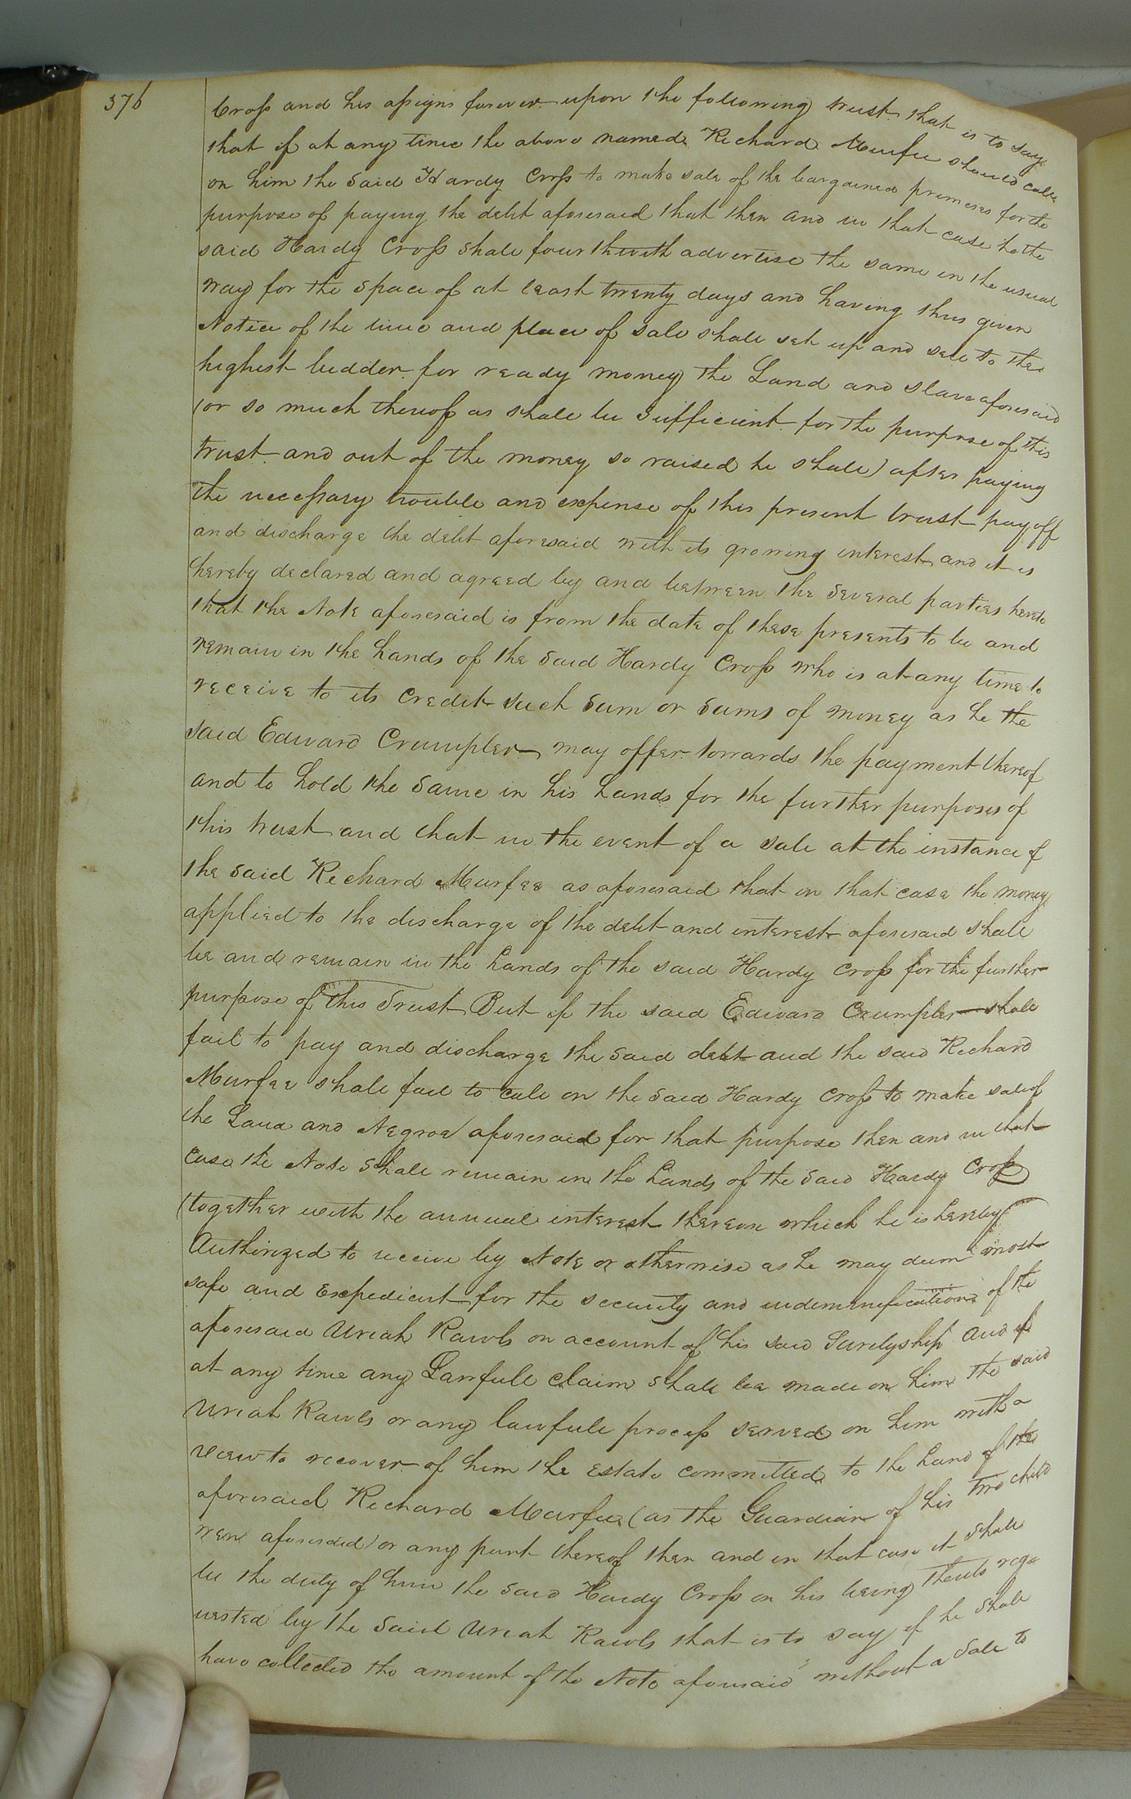 376
Cross and his assigns forever upon the following trust that is to say
that if at any time the above named Richard Murfee should call
on him the said Hardy Cross to make sale of the bargained premeses for the
purpose of paying the debt aforesaid that then and in that case he the
said Hardy Cross shall fourthwith advertise the same in the usual
way for the space of at least twenty days and having thus given
Notice of the time and place of sale shall set up and sell to the
highest bidder for ready money the Land and slave aforesaid
(or so much thereof as shall be sufficient for the purpose of this
trust and out of the money so raised he shall) after paying
the necessary trouble and expense of this present trust pay off
and discharge the debt aforesaid with its growing interest and it is
hereby declared and agreed by and between the several parties hereto
that the Note aforesaid is from the date of these presents to be and
remain in the hands of the said Hardy Cross who is at any time to
receive to its credit such sum or sums of money as he the
said Edward Crumpler may offer towards the payment thereof
and to hold the same in his hands for the further purposes of
this trust and that in the event of a sale at the instance of
the said Richard Murfee as aforesaid that in that case the money
applied to the discharge of the debt and interest aforesaid shall
be and remain in the hands of the said Hardy Cross for the further
purpose of this Trust But if the said Edward Crumpler shall
fail to pay and discharge the said debt and the said Richard
Murfee shall fail to call on the said Hardy Cross to make sale of
the Land and Negroe aforesaid for that purpose then and in that
case the Note shall remain in the hands of the said Hardy Cross
(together with the annual interest thereon which he is hereby
Authorized to receive by Note or otherwise as he may deem most
safe and expedient for the security and indemnification of the
aforesaid Uriah Rawls on account of his said Suretyship and if
at any time any Lawfull claim shall be made on him the said
Uriah Rawls or any lawfull process served on him with a
view to recover of him the estate committed to the hand of the
aforesaid Richard Murfee (as the Guardian of his two child
ren aforesaid) or any part thereof then and in that case it shall
be the duty of him the said Hardy Cross on his being thereto requ
uested by the said Uriah Rawls that is to say if he shall
have collected the amount of the Note aforesaid without a sale to